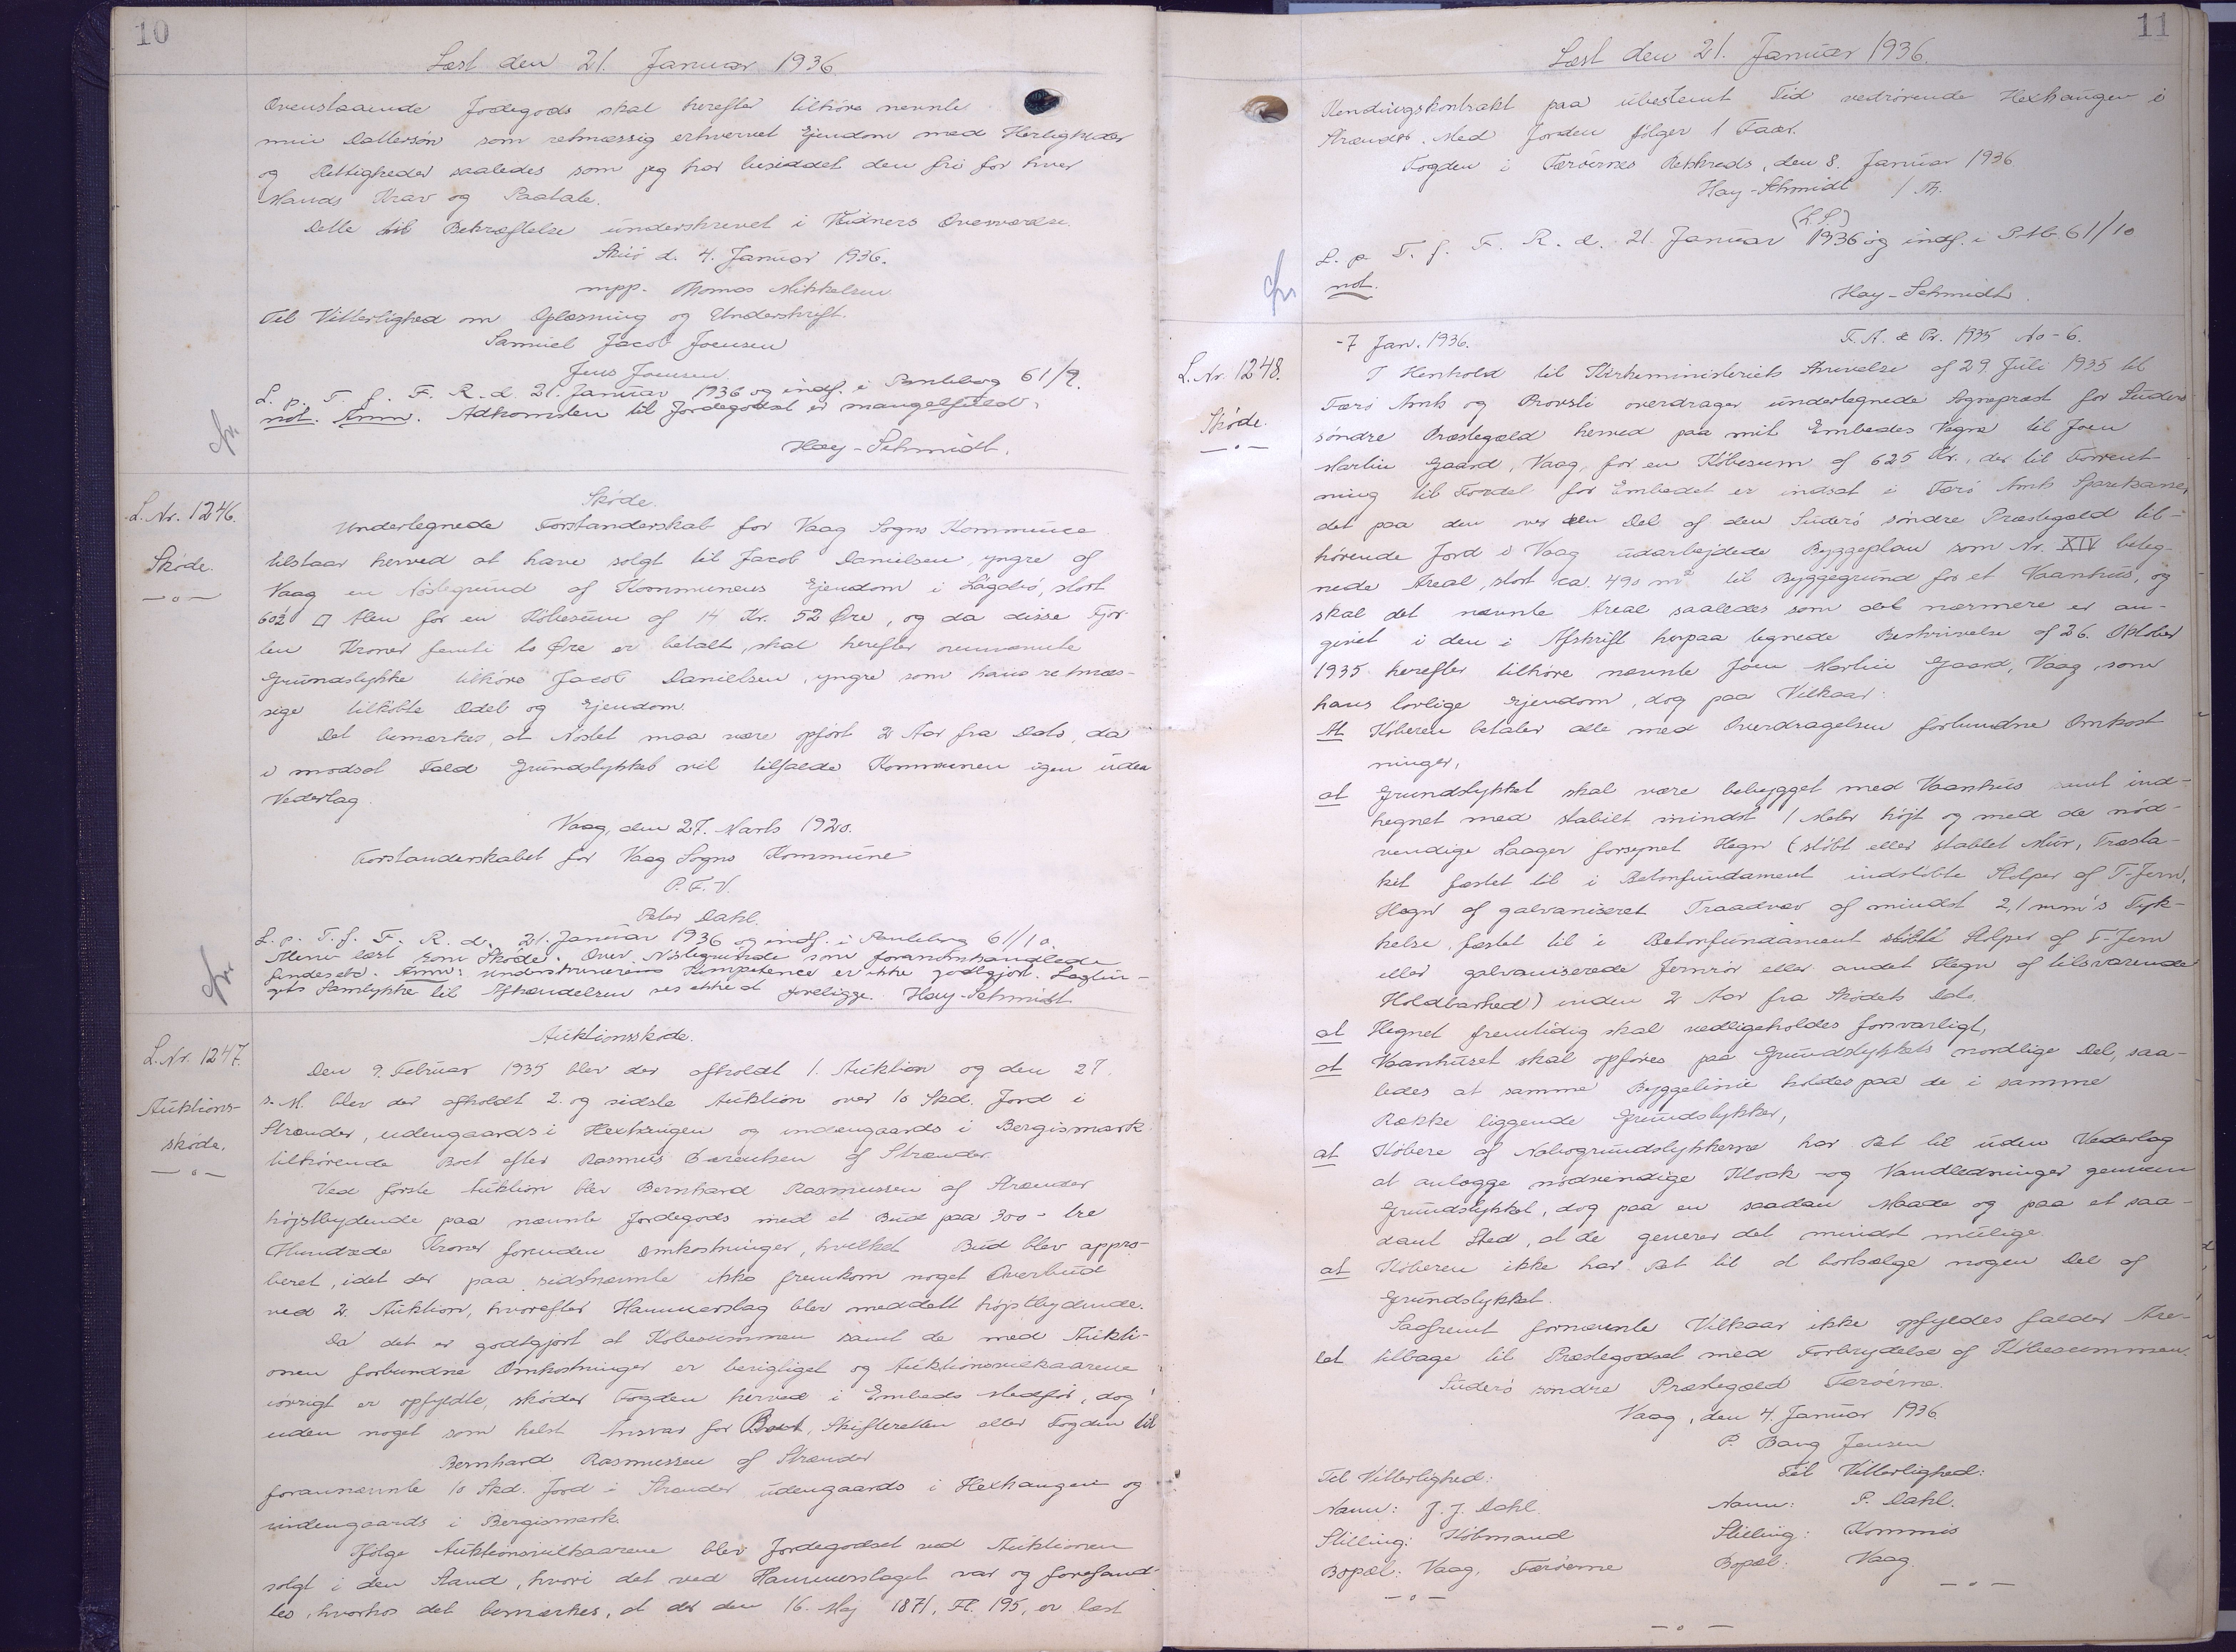 10
Læst den 21. Januar 1936
Ovenstaaende Jordegods skal herefter tilhøre nævnte
min Dattersøn som retmæssig erhvervet Ejendom med Herligheder
og Rettigheder saaledes som jeg har besiddet den fri for hver
Mands Krav og Paatale.
Dette til Bekræftelse underskrevet i Vidners Overværelse.
d. 4. Januar 1936.
mpp. Thomas Mikkelsen
Til Vitterlighed om Oplæsning og Underskrift.
Samuel Jacob Joensen
Jens Joensen
L. p. T. f. F. R. d. 21. Januar 1936 og indf. i Pantebog 61/9.
not. Anm. Adkomsten til Jordegodset er mangelfuld.
Hay-Schmidt.
L. Nr. 1246.
Skøde.
Skøde.
Underlegnede Forstanderskab for Vaag Sogns Kommune
tilstaar herved at have solgt til Jacob Danielsen yngre af
Vaag en Nøstegrund af Kommunens Ejendom i stort
602 □ Alen for en Købesum af 14 Kr. 52 Øre, og da disse Fjor
ten Kroner femti to Øre er betalt, skal herefter ovennævnte
Grundstykke tilhøre Jacob Danielsen, yngre som hans retmæs-
sige tilkøbte Odel og Ejendom.
Det bemærkes, at Nøstet maa være opført 2 Aar fra Dato, da
i modsat Fald Grundstykket vil tilfalde Kommunen igen uden
Vederlag.
Vaag, den 27. Marts 1920.
Forstanderskabet for Vaag Sogns Kommune
P. F. V.
Peter Dahl.
L. p. T. f. F. R. d. 21. Januar 1936 og indf. i Pantebog 61/10.
læst som Skøde. Over Nøstegrunde som foranomhandlede
findes Anm: underskriverens Kompetence er ikke godtgjort. Lagtin-
gets Samtykke til Afhændelsen ses ikke at foreligge. Hay-Schmidt
L. Nr. 1247.
Auktions-
skøde.
Auktionsskøde.
Den 9. Februar 1935 blev der afholdt 1. Auktion og den 27.
s. M. blev der afholdt 2. og sidste Auktion over 10 Skd. Jord i
Strænder, udengaards i Hexhaugen og indengaards i Bergismark
tilhørende Boet efter Rasmus Berentsen af Strænder.
Ved første Auktion blev Bernhard Rasmussen af Strænder
højstbydende paa nævnte Jordegods med et Bud paa 300 - tre
Hundrede Kroner foruden Omkostninger, hvilket Bud blev appro-
beret, idet der paa sidstnævnte ikke fremkom noget Overbud
ved 2. Auktion, hvorefter Hammerslag blev meddelt højstbydende.
Da det er godtgjort at Købesummen samt de med Aukti-
onen forbundne Omkostninger er berigtiget og Auktionsvilkaarene
iøvrigt er opfyldte, skøder Fogden herved i Embeds Medfør, dog
uden noget som helst Ansvar for Boet, Skifteretten eller Fogden til
Bernhard Rasmussen af Strænder
forannævnte 10 Skd. Jord i Strænder udengaards i Hexhaugen og
indengaards i Bergismark.
Ifølge Auktionsvilkaarene blev Jordegodset ved Auktionen
solgt i den Stand, hvori det ved Hammerslaget var og forefand-
tes, hvorhos det bemærkes, at der den 16. Maj 1871, Fl. 195, er læst
11
Læst den 21. Januar 1936.
Kendingskontrakt paa ubestemt Tid vedrørende Hexhaugen i
Strænder. Med Jorden følger 1 Faar.
Fogden i Færøernes Retskreds, den 8. Januar 1936
Hay-Schmidt / Th.
(L.S.)
L. p. T. f. F. R. d. 21. Januar 1936 og indf. i P.M. 61/10
not.
Hay-Schmidt.
L. Nr. 1248.
Skøde.
-7 Jan. 1936. F. A. & Pr. 1935 No - 6.
I Henhold til Kirkeministeriets Skrivelse af 29 Juli 1935 til
Færø Amt og Provsti overdrager undertegnede Sognepræst for Suderø
søndre Præstegæld herved paa mit Embedes Vegne til Joen
Martin Gaard, Vaag, for en Købesum af 625 Kr., der til Forrent-
ning til Fordel for Embedet er indsat i Færø Amts Sparekasse,
det paa den ver den Del af den Suderø søndre Præstegæld til-
hørende Jord i Vaag udarbejdede Byggeplan som Nr. XIV beteg-
nede Areal, stort ca. 490 m² til Byggegrund for et Vaanhus, og
skal det nævnte Areal saaledes som det nærmere er an-
givet i den i Afskrift herpaa tegnede Beskrivelse af 26. Oktober
1935 herefter tilhøre nævnte Joen Martin Gaard, Vaag, som
hans lovlige Ejendom, dog paa Vilkaar:
At Køberen betaler alle med Overdragelsen forbundne Omkost
ninger,
at Grundstykket skal være bebygget med Vaanhus samt ind-
hegnet med stabilt mindst 1 Meter højt og med de nød-
vendige Laager forsynet Hegn (støbt eller stablet Mur, Træsta-
kit fæstet til i Betonfundament indstøbte Stolper af T-Jern,
Hegn af galvaniseret Traadvæv af mindst 2,1 mm's Tyk-
kelse, fæstet til i Betonfundament støbte Stolper af T-Jern
eller galvaniserede Jernrør eller andet Hegn af tilsvarende
Holdbarhed) inden 2 Aar fra Skødets Dato.
at Hegnet fremtidig skal vedligeholdes forsvarligt,
at Vaanhuset skal opføres paa Grundstykkets nordlige Del, saa-
ledes at samme Byggelinie holdes paa de i samme
Række liggende Grundstykker,
at Købere af Nabogrundstykkerne har Ret til uden Vederlag
at anlægge nødvendige Kloak- og Vandledninger gennem
Grundstykket, dog paa en saadan Maade og paa et saa-
dant Sted, at de generer det mindst mulige.
at Køberen ikke har Ret til at bortsælge nogen Del af
Grundstykket.
Saafremt fornævnte Vilkaar ikke opfyldes falder Are-
let tilbage til Præstegodset med Forbrydelse af Købesummen.
Suderø søndre Præstegæld Færøerne.
Vaag, den 4. Januar 1936
P. Bang Jensen
Til Vitterlighed: Til Vitterlighed:
Navn: J. J. Dahl Navn: P. Dahl.
Stilling: Købmand Stilling: Kommis
Bopæl: Vaag, Færøerne Bopæl: Vaag.